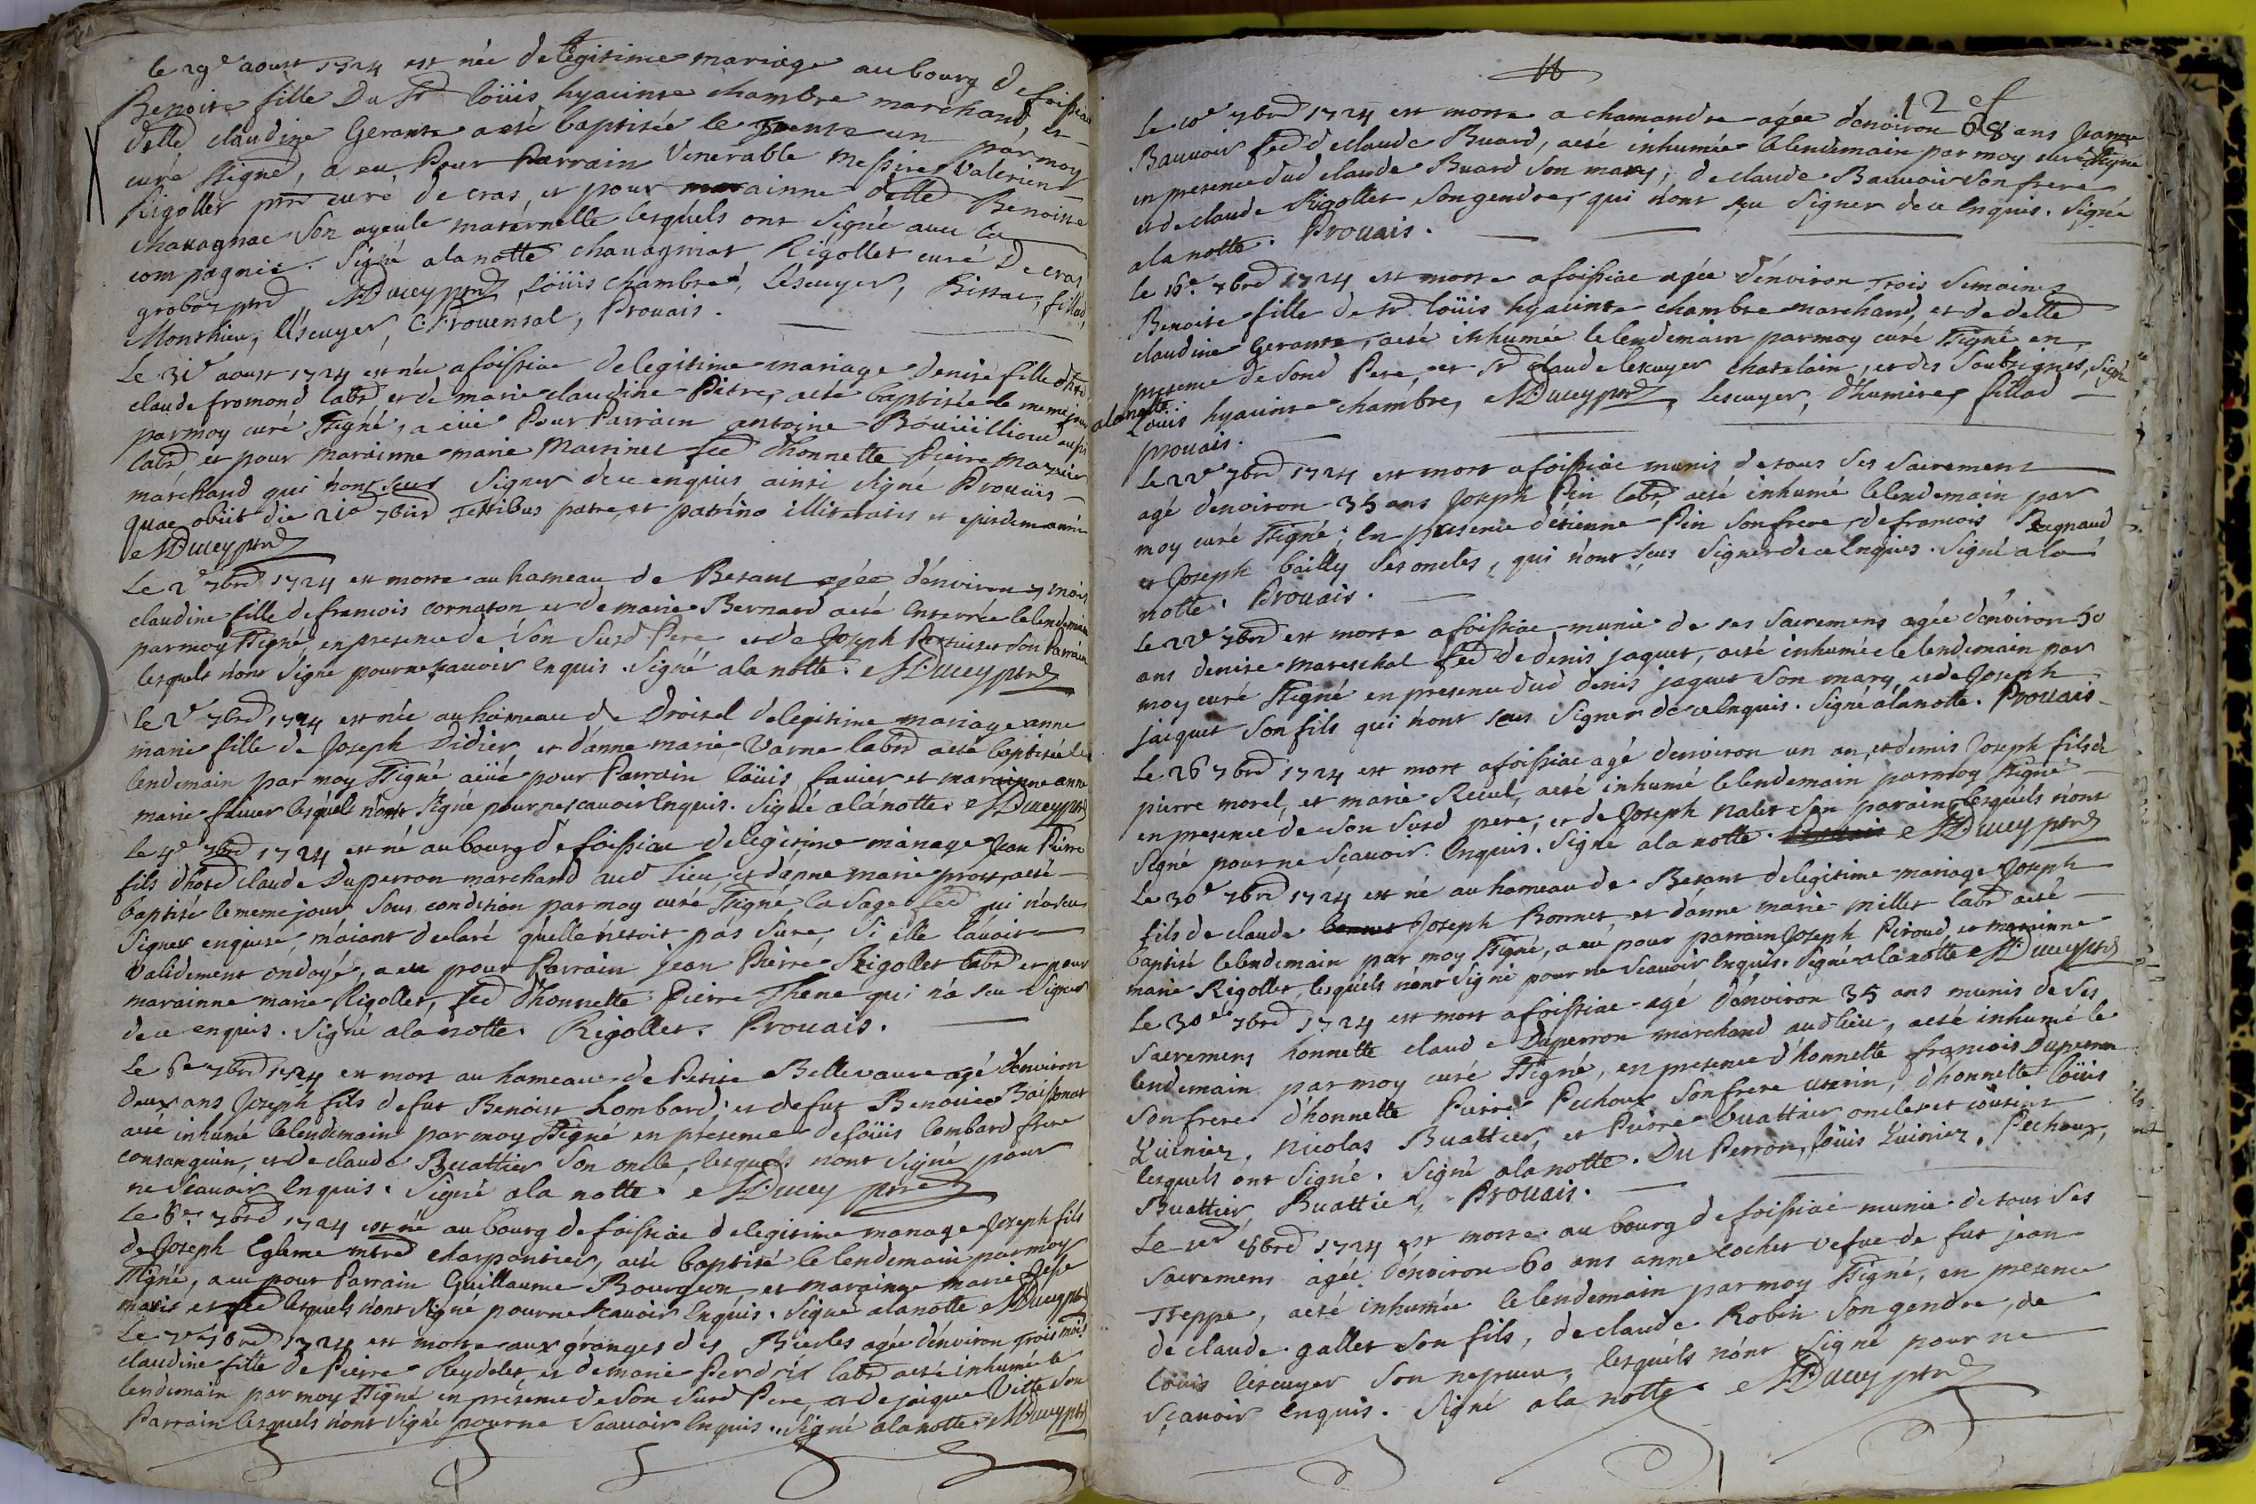 le 29e aoust 1724 est née de legitime mariage au bourg de foissiac
Benoite fille Du Sr loüis hyacinte chambre marchand, et
delle claudine Gerante a esté baptisée le trente un par moy
curé ssigné, a eu Pour Parrain Venerable Messire Valerien
Rigollet ptre curé de cras, et pour marainne delle Benoitte
chavagnac son ayeule maternelle lesquels ont signé avec la
compagnie. Signé a la notte chavagniat, Rigollet curé De cras
groboz ptre, Ducey ptre, loüis chambre, Lescuyer, Bissac, fillod,
Monthieu, l'Escuyer, C: Prouensal, Prouais.
Le 31e aoust 1724 est née a foissiac de legitime mariage Denise fille d'hte
claude fromond labr et de marie claudine Pitre, a esté baptisée le meme jour
par moy curé ssigné, a eüe Pour Parrain antoine Boüvillion aussi
labr, et pour marainne marie Martinet fee d'honnette Pierre Mazuier
marchand qui n'ont sceus signer de ce enquis ainsi signé Prouais
quae obiit die 21a 7bris testibus patre, et patrino illiteratis et ejusdem anni
Ducey ptre
Le 2e 7bre 1724 est morte au hameau de Besant agée d'environ 7 mois
claudine fille de francois cornaton et de marie Bernard a esté Enterrée le lendemain
par moy ssigné, en presence de son susd Pere et de Joseph son Parrain
lesquels n'ont signé pour ne scavoir Enquis. Signé a la notte. Ducey ptre
le 2e 7bre 1724 est née au hameau de Droisel de legitime mariage anne
marie fille de Joseph Didier et d'anne marie Varne labr a esté baptisée le
lendemain par moy ssigné a eüe pour Parrain loüis fauier et marainne anne
marie fauier lesquels n'ont signé pour ne scavoir Enquis. Signé a la notte. Ducey ptre
le 4e 7bre 1724 est né au bourg de foissiac de legitime mariage Jean Pierre
fils d'hote claude Duperron marchand aud Lieu et d'anne marie prost, a esté
baptisé le meme jour sous condition par moy curé ssigné la sage fee qui n'a sceu
signer enquise, m'aiant declaré qu'elle n'etoit pas sûre, si elle l'avoit
validement ondoyé, a eu pour Parrain jean Pierre Rigollet labr et pour
marainne marie Rigollet, fee d'honnette Pierre Thene qui n'a sceu signer
de ce enquis. Signé a la notte. Rigollet. Prouais.
Le 6e 7bre 1724 est mort au hameau de Petite Bellevavre agé d'environ
deux ans Joseph fils de fut Benoist Lombard et de fut Benoite
a esté inhumé le lendemain par moy ssigné en presence de loüis lombard frere
consanguin, et de claude Buattier son oncle, lesquels n'ont signé pour
ne scavoir Enquis. Signé a la notte. Ducey ptre
Le 6e 7bre 1724 est né au bourg de foissiac de legitime mariage Joseph fils
de Joseph Eglème mtre charpentier, a esté baptisé le lendemain par moy
ssigné, a eu pour Parrain Guillaume Bourgeon et marainne marie
maris et fee lesquels n'ont signé pour ne scavoir Enquis. Signé a la notte Ducey ptre
Le 7e 7bre 1724 est morte aux granges des Bierles agée d'environ trois mois
claudine fille de Pierre Reydelet, et de marie Perdrix labr a esté inhumée le
lendemain par moy ssigné en presence de son susd Pere, et de jaque Vitte son
Parrain lesquels n'ont signé pour ne scavoir Enquis. Signé a la notte Ducey ptre
12e f
Le 10e 7bre 1724 est morte a chamandre agée d'environ 68 ans Jeanne
Bauvoir fee de claude Buard, a esté inhumée le lendemain par moy curé ssigné
en presence dud claude Buard son mary, de claude Bauvoir son frere
et de claude Rigollet son gendre, qui n'ont sceu signer de ce Enquis. Signé
a la notte. Prouais.
le 16e 7bre 1724 est morte a foissiac agée d'environ trois semaines
Benoite fille de Sr loüis hyacinte chambre marchand, et de delle
claudine Gerante, a esté inhumée le lendemain par moy curé ssigné en
presence de sond Pere, et Sr claude lescuyer chatelain, et des soubsignes, signé
a la notte
Loüis hyacinte chambre, Ducey ptre, Lescuyer, d'humires, fillod
prouais.
Le 22e 7bre 1724 est mort a foissiac munis de tous ses sacrements
agé d'environ 35 ans Joseph Pin labr, a esté inhumé le lendemain par
moy curé ssigné; En presence d'etienne Pin son frere, de francois Regnaud
et Joseph bailly ses oncles, qui n'ont sceus signer de ce Enquis. Signé a la
notte. Prouais.
Le 22e 7bre est morte a foissiac munie de ses sacremens agée d'environ 50
ans denise mareschal fee de denis jaquet, a esté inhumée le lendemain par
moy curé ssigné en presence dud denis jaquet son mary, et de Joseph
jaquet son fils qui n'ont sceus signer de ce Enquis. Signé a la notte. Prouais
Le 26 7bre 1724 est mort a foissiac agé d'environ un an, et demis Joseph fils de
pierre morel, et marie Recul, a esté inhumé le lendemain par moy ssigné
en presence de son susd pere, et de Joseph Nalet son parain, lesquels n'ont
signé pour ne scavoir. Enquis. Signé a la notte. Ducey ptre
Le 30e 7bre 1724 est né au hameau de Besant de legitime mariage Joseph
fils de claude Joseph Bonnet, et d'anne marie millet labr a esté
baptisé le lendemain par moy ssigné, a eu pour parrain Joseph Piroud, et marainne
marie Rigollet, lesquels n'ont signé pour ne scavoir Enquis. Signé a la notte Ducey ptre
Le 30e 7bre 1724 est mort a foissiac agé d'environ 35 ans munis de ses
sacremens honnette claude Duperron marchand aud lieu, a esté inhumé le
lendemain par moy curé ssigné, en presence d'honnette francois Duperron
son frere d'honnette Pierre Pechoux son frere uterin, d'honnette loüis
Luiniez, Nicolas Buattier, et Pierre buattier oncles et cousins
lesquels ont signé. Signé a la notte. Du Perron, loüis Luiniez, Pechoux,
Buattier Buattier, Prouais.
Le 1er 8bre 1724 est morte au bourg de foissiac munie de tous ses
sacremens agée d'environ 60 ans anne cochet vefue de fut jean
Treppe, a esté inhumée le lendemain par moy ssigné, en presence
de claude gallet son fils, de claude Robin son gendre, de
loüis lescuyer son nepueu, lesquels n'ont signé pour ne
scavoir Enquis. Signé a la notte. Ducey ptre